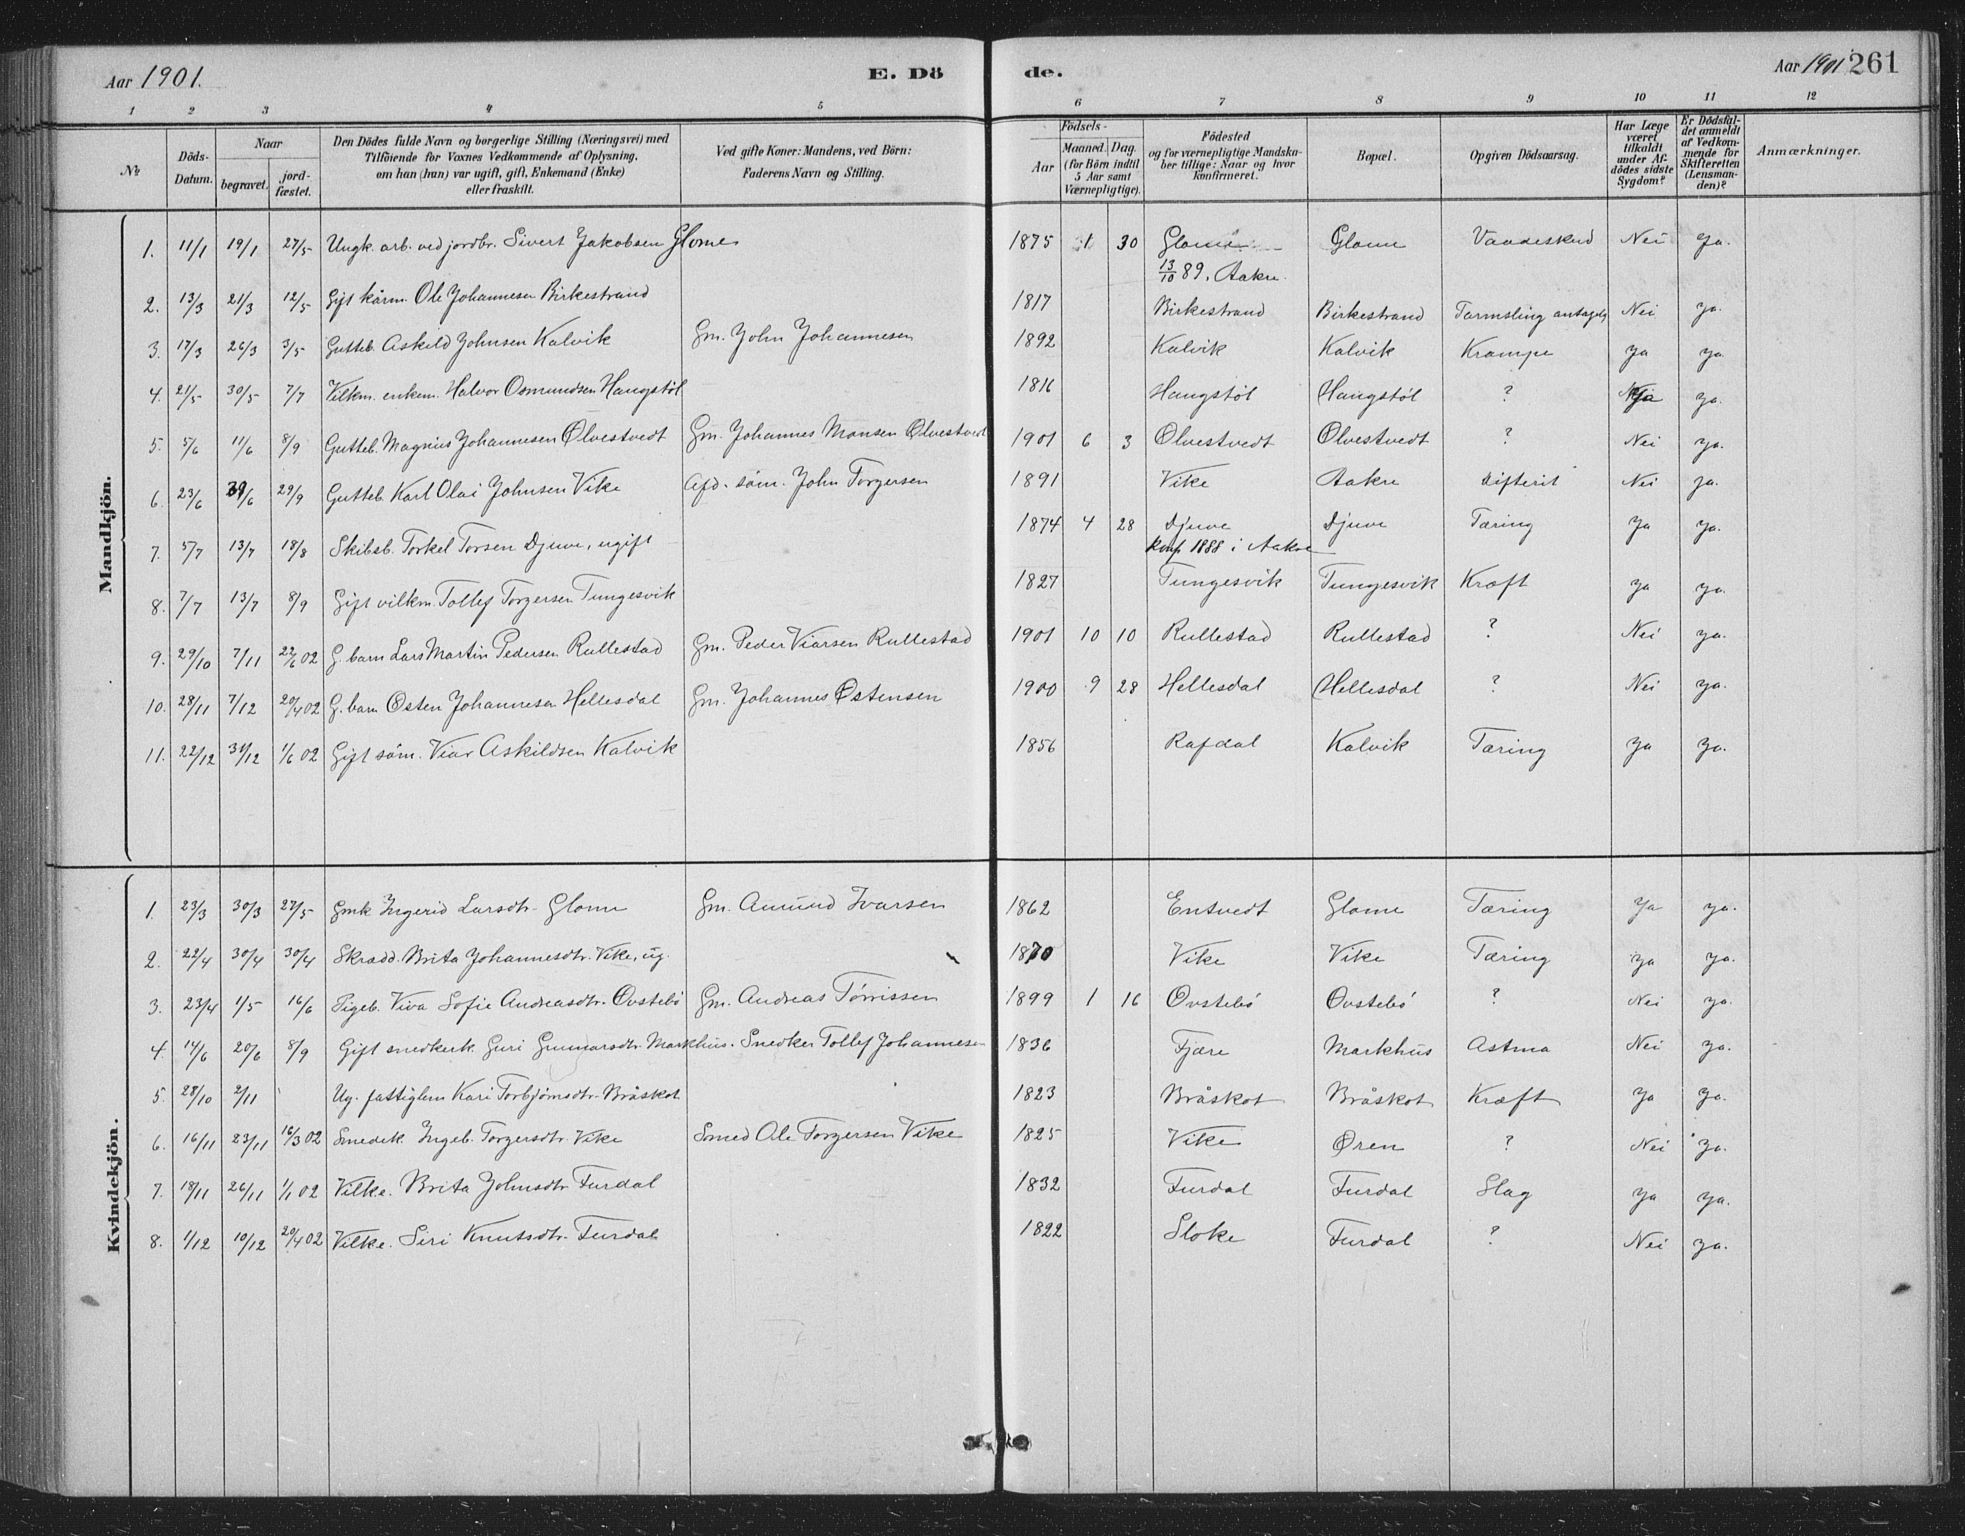 Aar 1901. E. Dö de. Aar 1901 261
1 2 3 4 5 6 7 8 9 10 11 12
No Döds-Datum. Naar begravet. jord-fæstet. Den Dödes fulde Navn og borgerlige Stilling (Næringsvei) med Tilföiende for Voxnes Vedkommende af Oplysning, om han (hun) var ugift, gift, Enkemand (Enke) eller fraskilt. Ved gifte Koner: Mandens, ved Börn: Faderens Navn og Stilling. Födsels- Aar Maaned. Dag. (for Börn indtil 5 Aar samt Værnepligtige). Födested og for værnepligtige Mandskaber tillige: Naar og hvor konfirmeret. Bopæl. Opgiven Dödsaarsag. Har Læge været tilkaldt under Afdödes sidste Sygdom? Er Dödsfaldet anmeldt af Vedkommende for Skifteretten (Lensmanden)? Anmærkninger.
Mandkjön.
1. 11/1 19/1 27/5 Ungk. arb. ved jordbr. Sivert Jakobsen Glome 1875 1 30 Glome Glome Vaadeskud Nei Ja.
13/10 89. Aakre.
2. 13/3 21/3 12/5 Gift kårm. Ole Johannesen Birkestrand 1817 Birkestrand Birkestrand Tarmsling antagelig Nei Ja.
3. 17/3 26/3 3/5 Gutteb. Askild Johnsen Kalvik Gm. John Johannesen 1892 Kalvik Kalvik Krampe Ja Ja.
4. 21/5 30/5 7/7 Vilkm. enkem. Halvor Osmundsen Haugstøl 1816 Haugstøl Haugstøl ? Ja Ja.
5. 5/6 11/6 8/9 Gutteb. Magnus Johannesen Ølvestvedt Gm. Johannes Monsen Ølvestvedt 1901 6 3 Ølvestvedt Ølvestvedt ? Nei Ja.
6. 23/6 29/6 29/9 Gutteb. Karl Olai Johnsen Vike Afd. søm. John Torgersen 1891 Vike Aakre Difterit Nei Ja.
7. 5/7 13/7 18/8 Skibsb. Torkel Torsen Djuve, ugift 1874 4 28 Djuve Djuve Tæring Ja Ja.
konf. 1888 i Aakre
8. 7/7 13/7 8/9 Gift vilkm. Tollef Torgersen Tungesvik 1827 Tungesvik Tungesvik Kræft Ja Ja.
9. 29/10 7/11 22/6 02 G. barn Lars Martin Pedersen Rullestad Gm. Peder Viarsen Rullestad 1901 10 10 Rullestad Rullestad ? Nei Ja.
10. 28/11 7/12 20/4 02 G. barn Østen Johannesen Hellesdal Gm. Johannes Østensen 1900 9 28 Hellesdal Hellesdal ? Nei Ja.
11. 22/12 31/12 1/6 02 Gift søm. Viar Askildsen Kalvik 1856 Rafdal Kalvik Tæring Ja Ja.
Kvindekjön.
1. 23/3 30/3 27/5 Gmk Ingerid Larsdtr. Glome Gm. Amund Ivarsen 1862 Entvedt Glome Tæring Ja Ja.
2. 22/4 30/4 30/4 Skrædd. Brita Johannesdtr. Vike, ug. 1870 Vike Vike Tæring Ja Ja.
3. 23/4 1/5 16/6 Pigeb. Viva Sofie Andreasdtr. Ovstebø Gm. Andreas Tørrissen 1899 1 16 Ovstebø Ovstebø ? Nei Ja.
4. 14/6 20/6 8/9 Gift snedkerk. Guri Gunnarsdtr. Markhus. Snedker Tollef Johannesen 1836 Fjære Markhus Astma Nei Ja.
5. 28/10 2/11 Ug. fattiglem Kari Torbjørnsdtr. Bråskot 1823 Bråskot Bråskot Kræft Ja Ja.
6. 16/11 23/11 16/3 02 Smedek. Ingeb. Torgersdtr. Vike Smed Ole Torgersen Vike 1825 Vike Øren ? Nei Ja.
7. 18/11 26/11 1/1 02 Vilke. Brita Johnsdtr. Furdal 1832 Furdal Furdal Slag Ja Ja.
8. 1/12 10/12 20/4 02 Vilke. Siri Knutsdtr. Furdal 1822 Sloke Furdal ? Nei Ja.